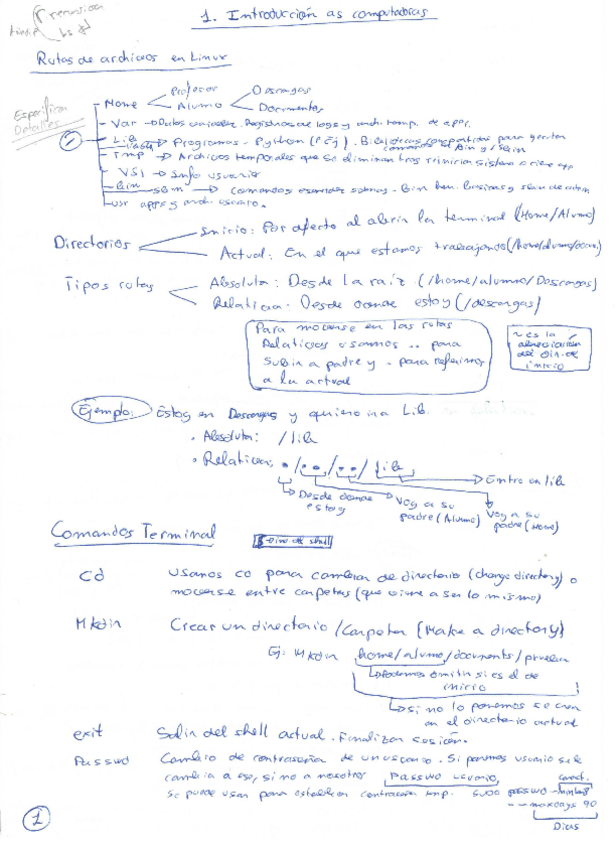 1. Introducción as computadoras
Rutas de archivos en Linux
Especificar
Detalles
Home
Profesor
Alumno
Descargas
Documentos
Var → Datos variables. Registros de logs y arch. temp. de apps.
Lib → Programas - Python (P.Ej). Bibliotecas compartidas para
comandos de Bin y Sbin
Tmp → Archivos temporales que se eliminan tras reiniciar sistema o cierre app
→ Info usuario
Bin - sbin → comandos esenciales
usr apps y arch. usuario.
Directorios
Inicio: Por afecto al abrir la terminal (Home/Alumno)
Actual: En el que estamos trabajando (/home/alumno/docum.)
Tipos rutas
Absoluta: Desde la raíz (/home/alumno/Descargas)
Relativa. Desde donde estoy (/descargas)
Para moverse en las rutas
Relativas usamos .. para
subir a padre y . para referirnos
a la actual
~ es la
abreviación
del dir. de
inicio
Ejemplo: Estoy en Descargas y quiero ir a Lib.
• Absoluta: /lib
• Relativa: ./../../lib
Entro en lib
Desde donde
estoy
Voy a su
padre (Alumno)
Voy a su
padre (Home)
Comandos Terminal
de shell
Cd Usamos cd para cambiar de directorio (change directory) o
moverse entre carpetas (que viene a ser lo mismo)
Mkdir Crear un directorio/Carpeta (Make a directory)
Ej: Mkdir home/alumno/documents/prueba
Podemos omitir si es el de
inicio
si no lo ponemos se crea
en el directorio actual
exit Salir del shell actual. Finalizar sesión.
Passwd Cambio de contraseña de un usuario. Si ponemos usuario se le
cambia a ese, si no a nosotros Passwd usuario,
Se puede usar para establecer contraseña tmp. sudo passwd
--maxdays 90
Días
1